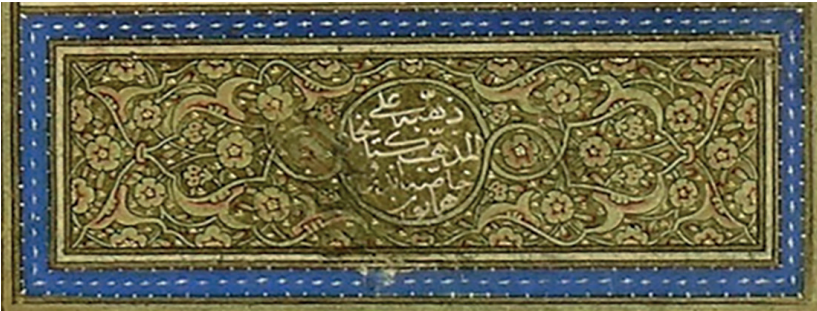 ذهّبه علی
المذهّب کتابخانه
خاصه
همایون